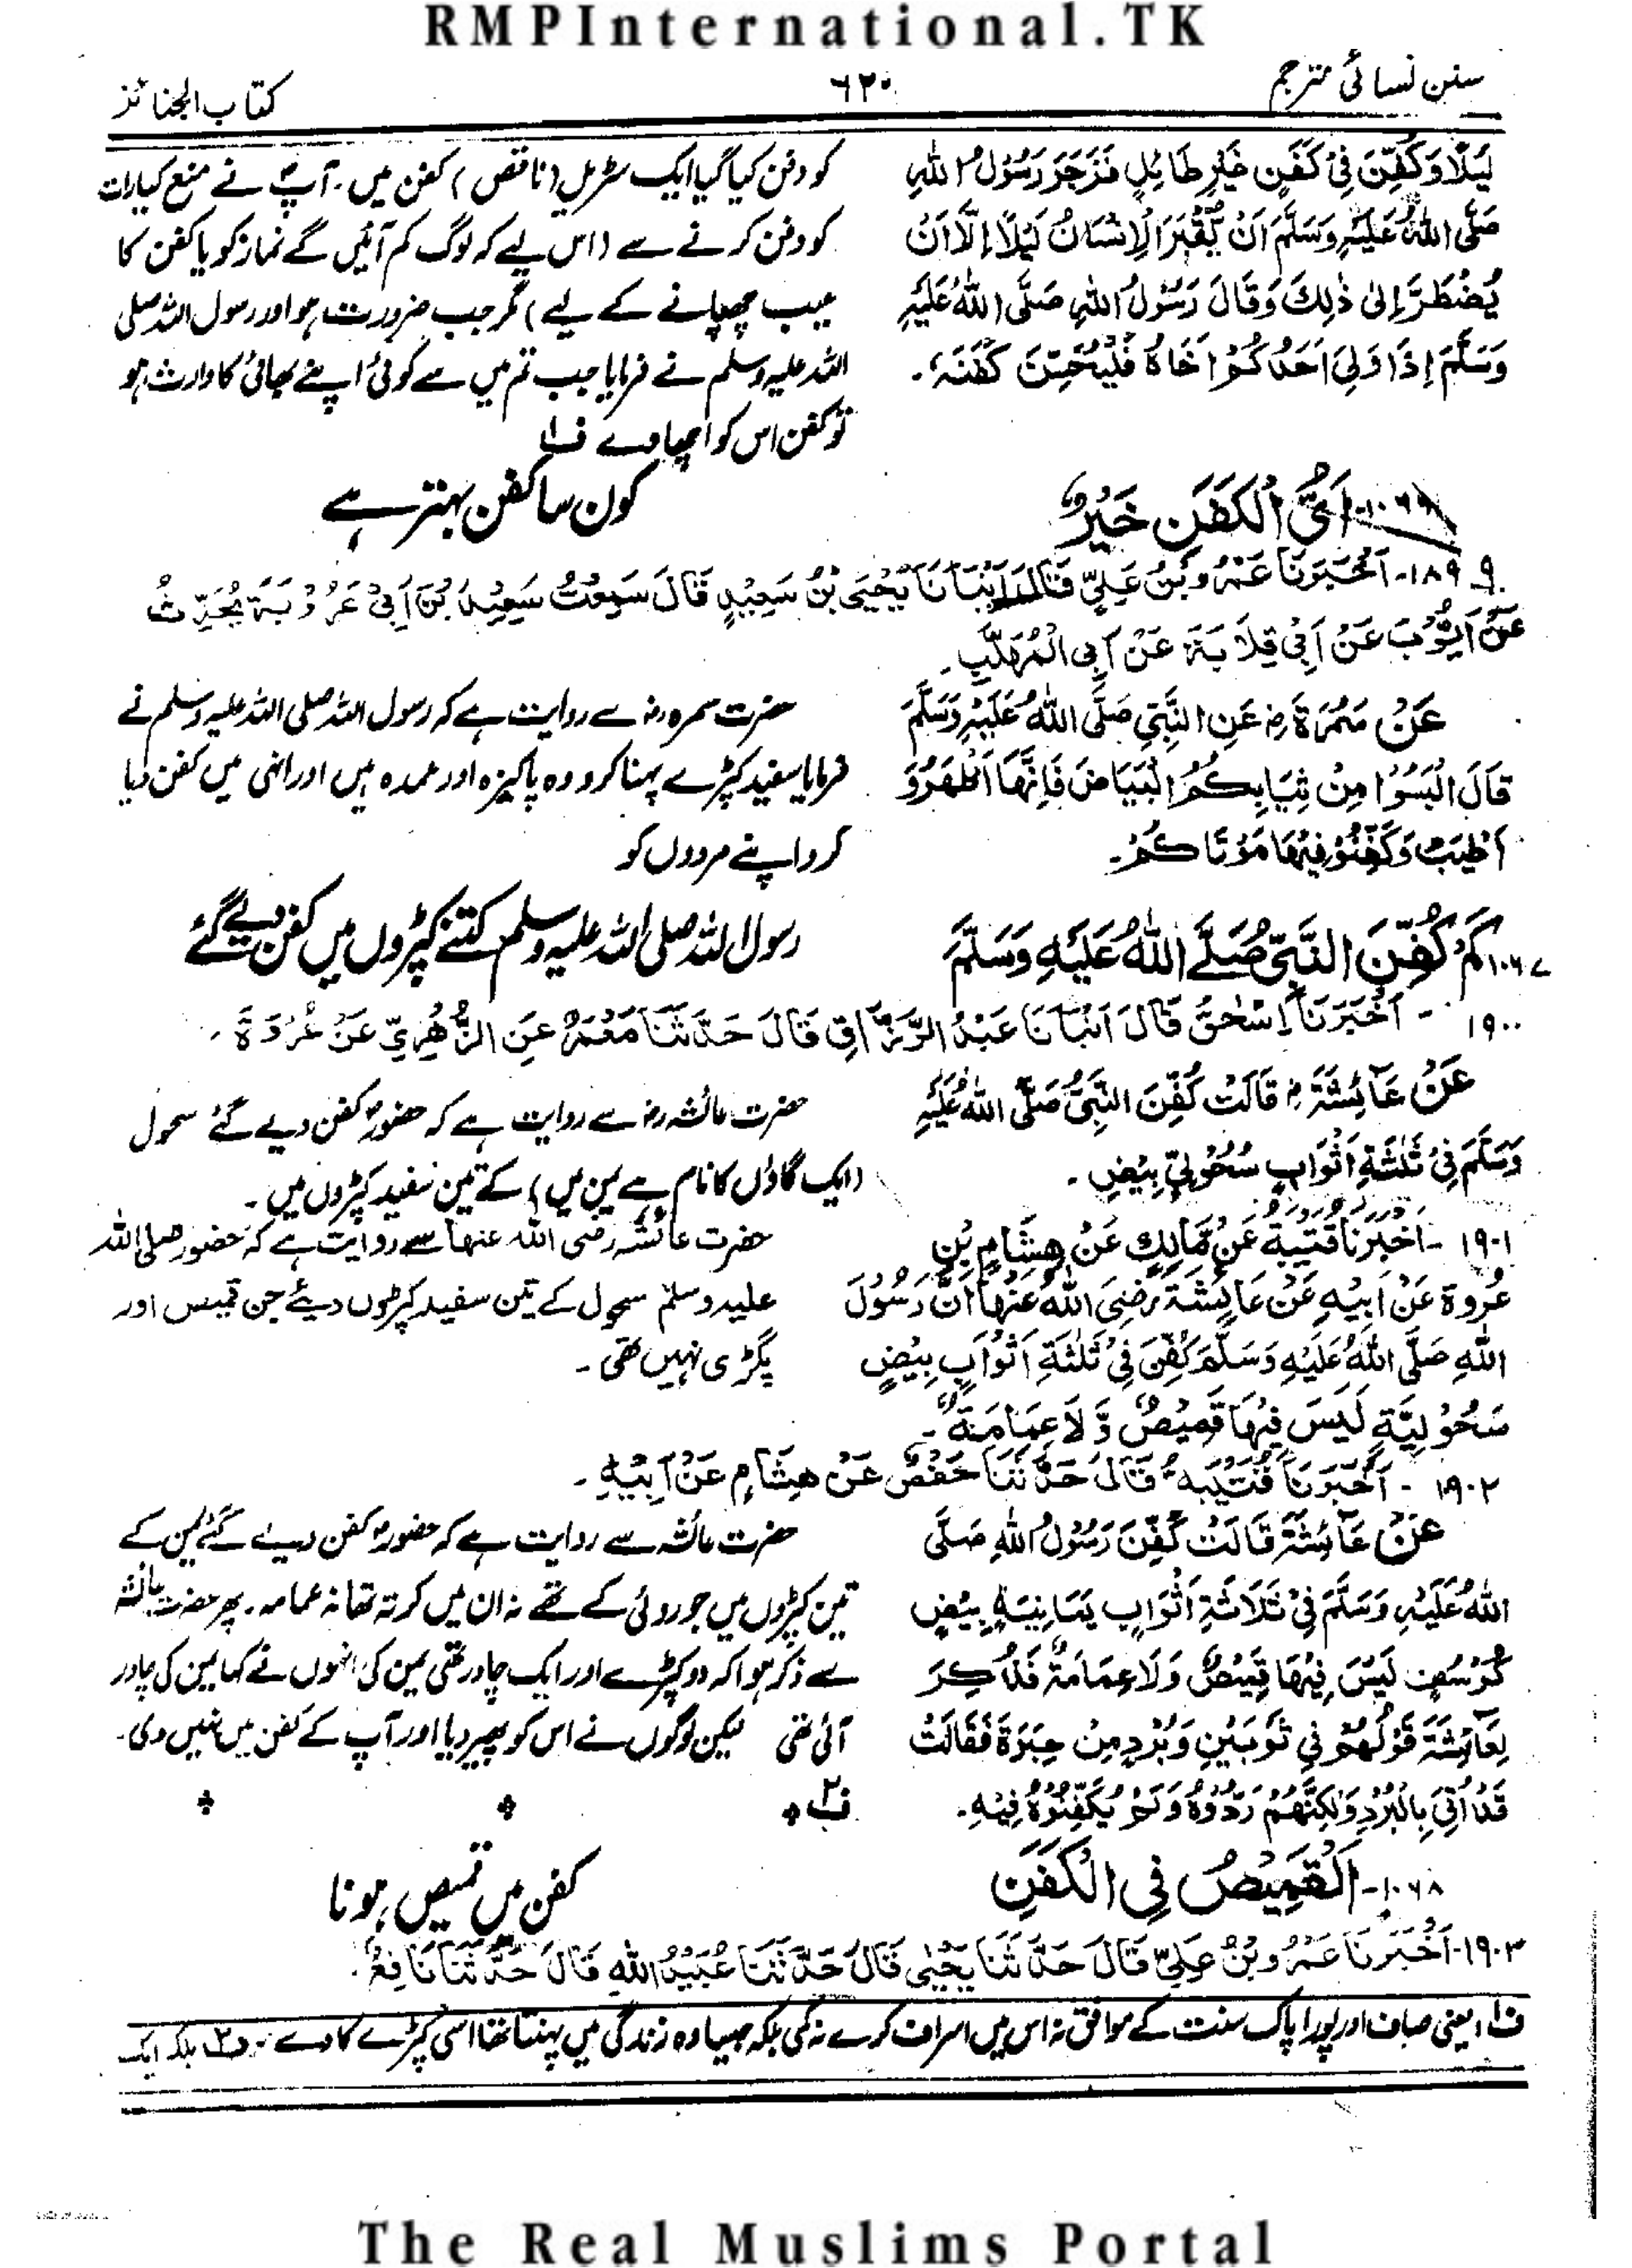 RMPInternational.TK
سنن نسائی مترجم
۶۲۰
کتاب الجنائز
لَيْلًا وَكُفِّنَ فِيْ كَفَنٍ غَيْرِ طَائِلٍ فَزَجَرَ رَسُوْلُ اللهِ
صَلَّى اللهُ عَلَيْهِ وَسَلَّمَ اَنْ يُّقْبَرَ الْاِنْسَانُ لَيْلًا اِلَّا اَنْ
يُضْطَرَّ اِلىٰ ذٰلِكَ وَقَالَ رَسُوْلُ اللهِ صَلَّى اللهُ عَلَيْهِ
وَسَلَّمَ اِذَا وَلِيَ اَحَدُكُمْ اَخَاهُ فَلْيُحَسِّنْ كَفَنَهٗ.
کو دفن کیا گیا ایک سٹریل (ناقص) کفن میں۔ آپؐ نے منع کیا رات
کو دفن کرنے سے (اس لیے کہ لوگ کم آئیں گے نماز کو یا کفن کا
عیب چھپانے کے لیے) مگر جب ضرورت ہو اور رسول اللہ صلی
اللہ علیہ وسلم نے فرمایا جب تم میں سے کوئی اپنے بھائی کا وارث ہو
تو کفن اس کو اچھا دے ف۱
۱۰۶۶- اَيُّ الْكَفَنِ خَيْرٌ
کون سا کفن بہتر ہے
۱۸۹۹- اَخْبَرَنَا عَمْرُو بْنُ عَلِيٍّ قَالَ اَنْبَانَا يَحْيَى بْنُ سَعِيْدٍ قَالَ سَمِعْتُ سَعِيْدَ بْنَ اَبِيْ عَرُوْبَةَ يُحَدِّثُ
عَنْ اَيُّوْبَ عَنْ اَبِيْ قِلَابَةَ عَنْ اَبِي الْمُهَلَّبِ.
عَنْ سَمُرَةَ رض عَنِ النَّبِيِّ صَلَّى اللهُ عَلَيْهِ وَسَلَّمَ
قَالَ الْبَسُوْا مِنْ ثِيَابِكُمُ الْبَيَاضَ فَاِنَّهَا اَطْهَرُ وَ
اَطْيَبُ وَكَفِّنُوْا فِيْهَا مَوْتَاكُمْ.
حضرت سمرہ رض سے روایت ہے کہ رسول اللہ صلی اللہ علیہ وسلم نے
فرمایا سفید کپڑے پہنا کرو وہ پاکیزہ اور عمدہ ہیں اور انہی میں کفن دیا
کرو اپنے مردوں کو
۱۰۶۷ كَمْ كُفِّنَ النَّبِيُّ صَلَّى اللهُ عَلَيْهِ وَسَلَّمَ
رسول اللہ صلی اللہ علیہ وسلم کتنے کپڑوں میں کفن دیے گئے
۱۹۰۰ - اَخْبَرَنَا اِسْحٰقُ قَالَ اَنْبَانَا عَبْدُ الرَّزَّاقِ قَالَ حَدَّثَنَا مَعْمَرٌ عَنِ الزُّهْرِيِّ عَنْ عُرْوَةَ.
عَنْ عَائِشَةَ رض قَالَتْ كُفِّنَ النَّبِيُّ صَلَّى اللهُ عَلَيْهِ
وَسَلَّمَ فِيْ ثَلٰثَةِ اَثْوَابٍ سُحُوْلِيٍّ بِيْضٍ.
حضرت عائشہ رض سے روایت ہے کہ حضورؐ کفن دیے گئے سحول
(ایک گاؤں کا نام ہے یمن میں) کے تین سفید کپڑوں میں۔
۱۹۰۱ - اَخْبَرَنَا قُتَيْبَةُ عَنْ مَّالِكٍ عَنْ هِشَامِ بْنِ
عُرْوَةَ عَنْ اَبِيْهِ عَنْ عَائِشَةَ رَضِيَ اللهُ عَنْهَا اَنَّ رَسُوْلَ
اللهِ صَلَّى اللهُ عَلَيْهِ وَسَلَّمَ كُفِّنَ فِيْ ثَلٰثَةِ اَثْوَابٍ بِيْضٍ
سَحُوْلِيَّةٍ لَيْسَ فِيْهَا قَمِيْصٌ وَّلَا عِمَامَةٌ.
حضرت عائشہ رضی اللہ عنہا سے روایت ہے کہ حضور صلی اللہ
علیہ وسلم سحول کے تین سفید کپڑوں دیئے جن قمیص اور
پگڑی نہیں تھی۔
۱۹۰۲ - اَخْبَرَنَا قُتَيْبَةُ قَالَ حَدَّثَنَا حَفْصٌ عَنْ هِشَامٍ عَنْ اَبِيْهِ.
عَنْ عَائِشَةَ قَالَتْ كُفِّنَ رَسُوْلُ اللهِ صَلَّى
اللهُ عَلَيْهِ وَسَلَّمَ فِيْ ثَلَاثَةِ اَثْوَابٍ يَمَانِيَةٍ بِيْضٍ
كُرْسُفٍ لَيْسَ فِيْهَا قَمِيْصٌ وَلَا عِمَامَةٌ فَذُكِرَ
لِعَائِشَةَ قَوْلُهُمْ فِيْ ثَوْبَيْنِ وَبُرْدٍ مِنْ حِبَرَةٍ فَقَالَتْ
قَدْ اُتِيَ بِالْبُرْدِ وَلٰكِنَّهُمْ رَدُّوْهُ وَلَمْ يُكَفِّنُوْهُ فِيْهِ.
حضرت عائشہ سے روایت ہے کہ حضورؐ کفن دیے گئے یمن کے
تین کپڑوں میں جو روئی کے تھے نہ ان میں کرتہ تھا نہ عمامہ۔ پھر حضرت عائشہ
سے ذکر ہوا کہ دو کپڑے اور ایک چادر تھی یمن کی انہوں نے کہا یمن کی چادر
آئی تھی لیکن لوگوں نے اس کو پھیر دیا اور آپ کے کفن میں نہیں دی۔
ف۲
۱۰۶۸- اَلْقَمِيْصُ فِي الْكَفَنِ
کفن میں قمیص ہونا
۱۹۰۳- اَخْبَرَنَا عَمْرُو بْنُ عَلِيٍّ قَالَ حَدَّثَنَا يَحْيٰى قَالَ حَدَّثَنَا عُبَيْدُ اللهِ قَالَ حَدَّثَنَا نَافِعٌ.
ف۱، یعنی صاف اور پورا پاک سنت کے موافق نہ اس میں اسراف کرے نہ کمی بلکہ جیسا وہ زندگی میں پہنتا تھا اسی کپڑے کا دے۔ ف۲ بلکہ ایک
The Real Muslims Portal